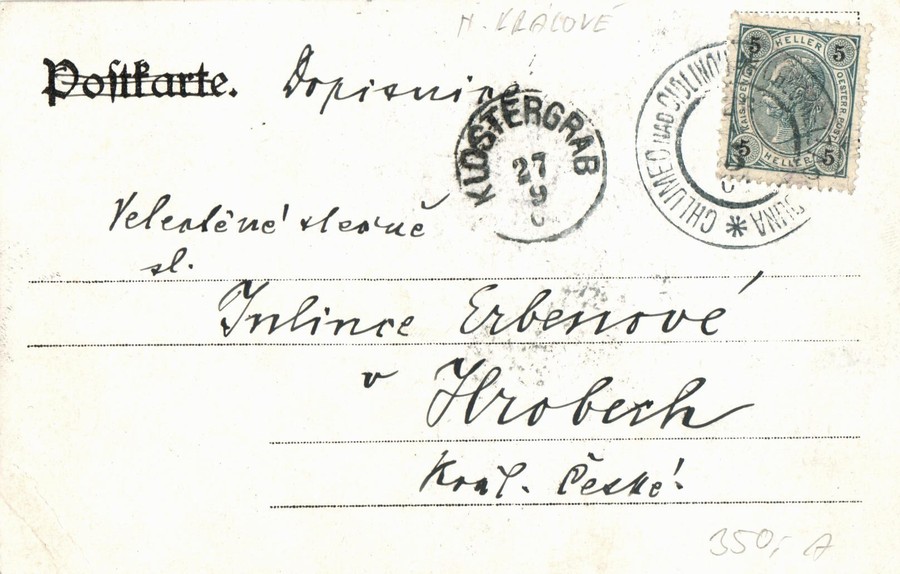 H. KRÁLOVÉ
Postkarte. Dopisnice
KLOSTERGRAB
27
9
CHLUMEC NAD CIDLINOU
5 HELLER 5
KAIS. KOENIGL. OESTERR. POST
5 HELLER 5
Velectěné slečně
sl.
Julince Erbenové
v Hrobech
Král. České!
350,- A